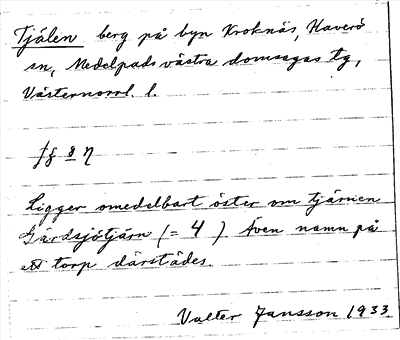 Tjälen berg på byn Kroknäs, Haverö
sn, Medelpads västra domsagas tg,
Västernorrl. l.
Ligger omedelbart öster om tjärnen
Gårdsjötjärn (= 4 ) Även namn på
ett torp därstädes.
Valter Jansson 1933